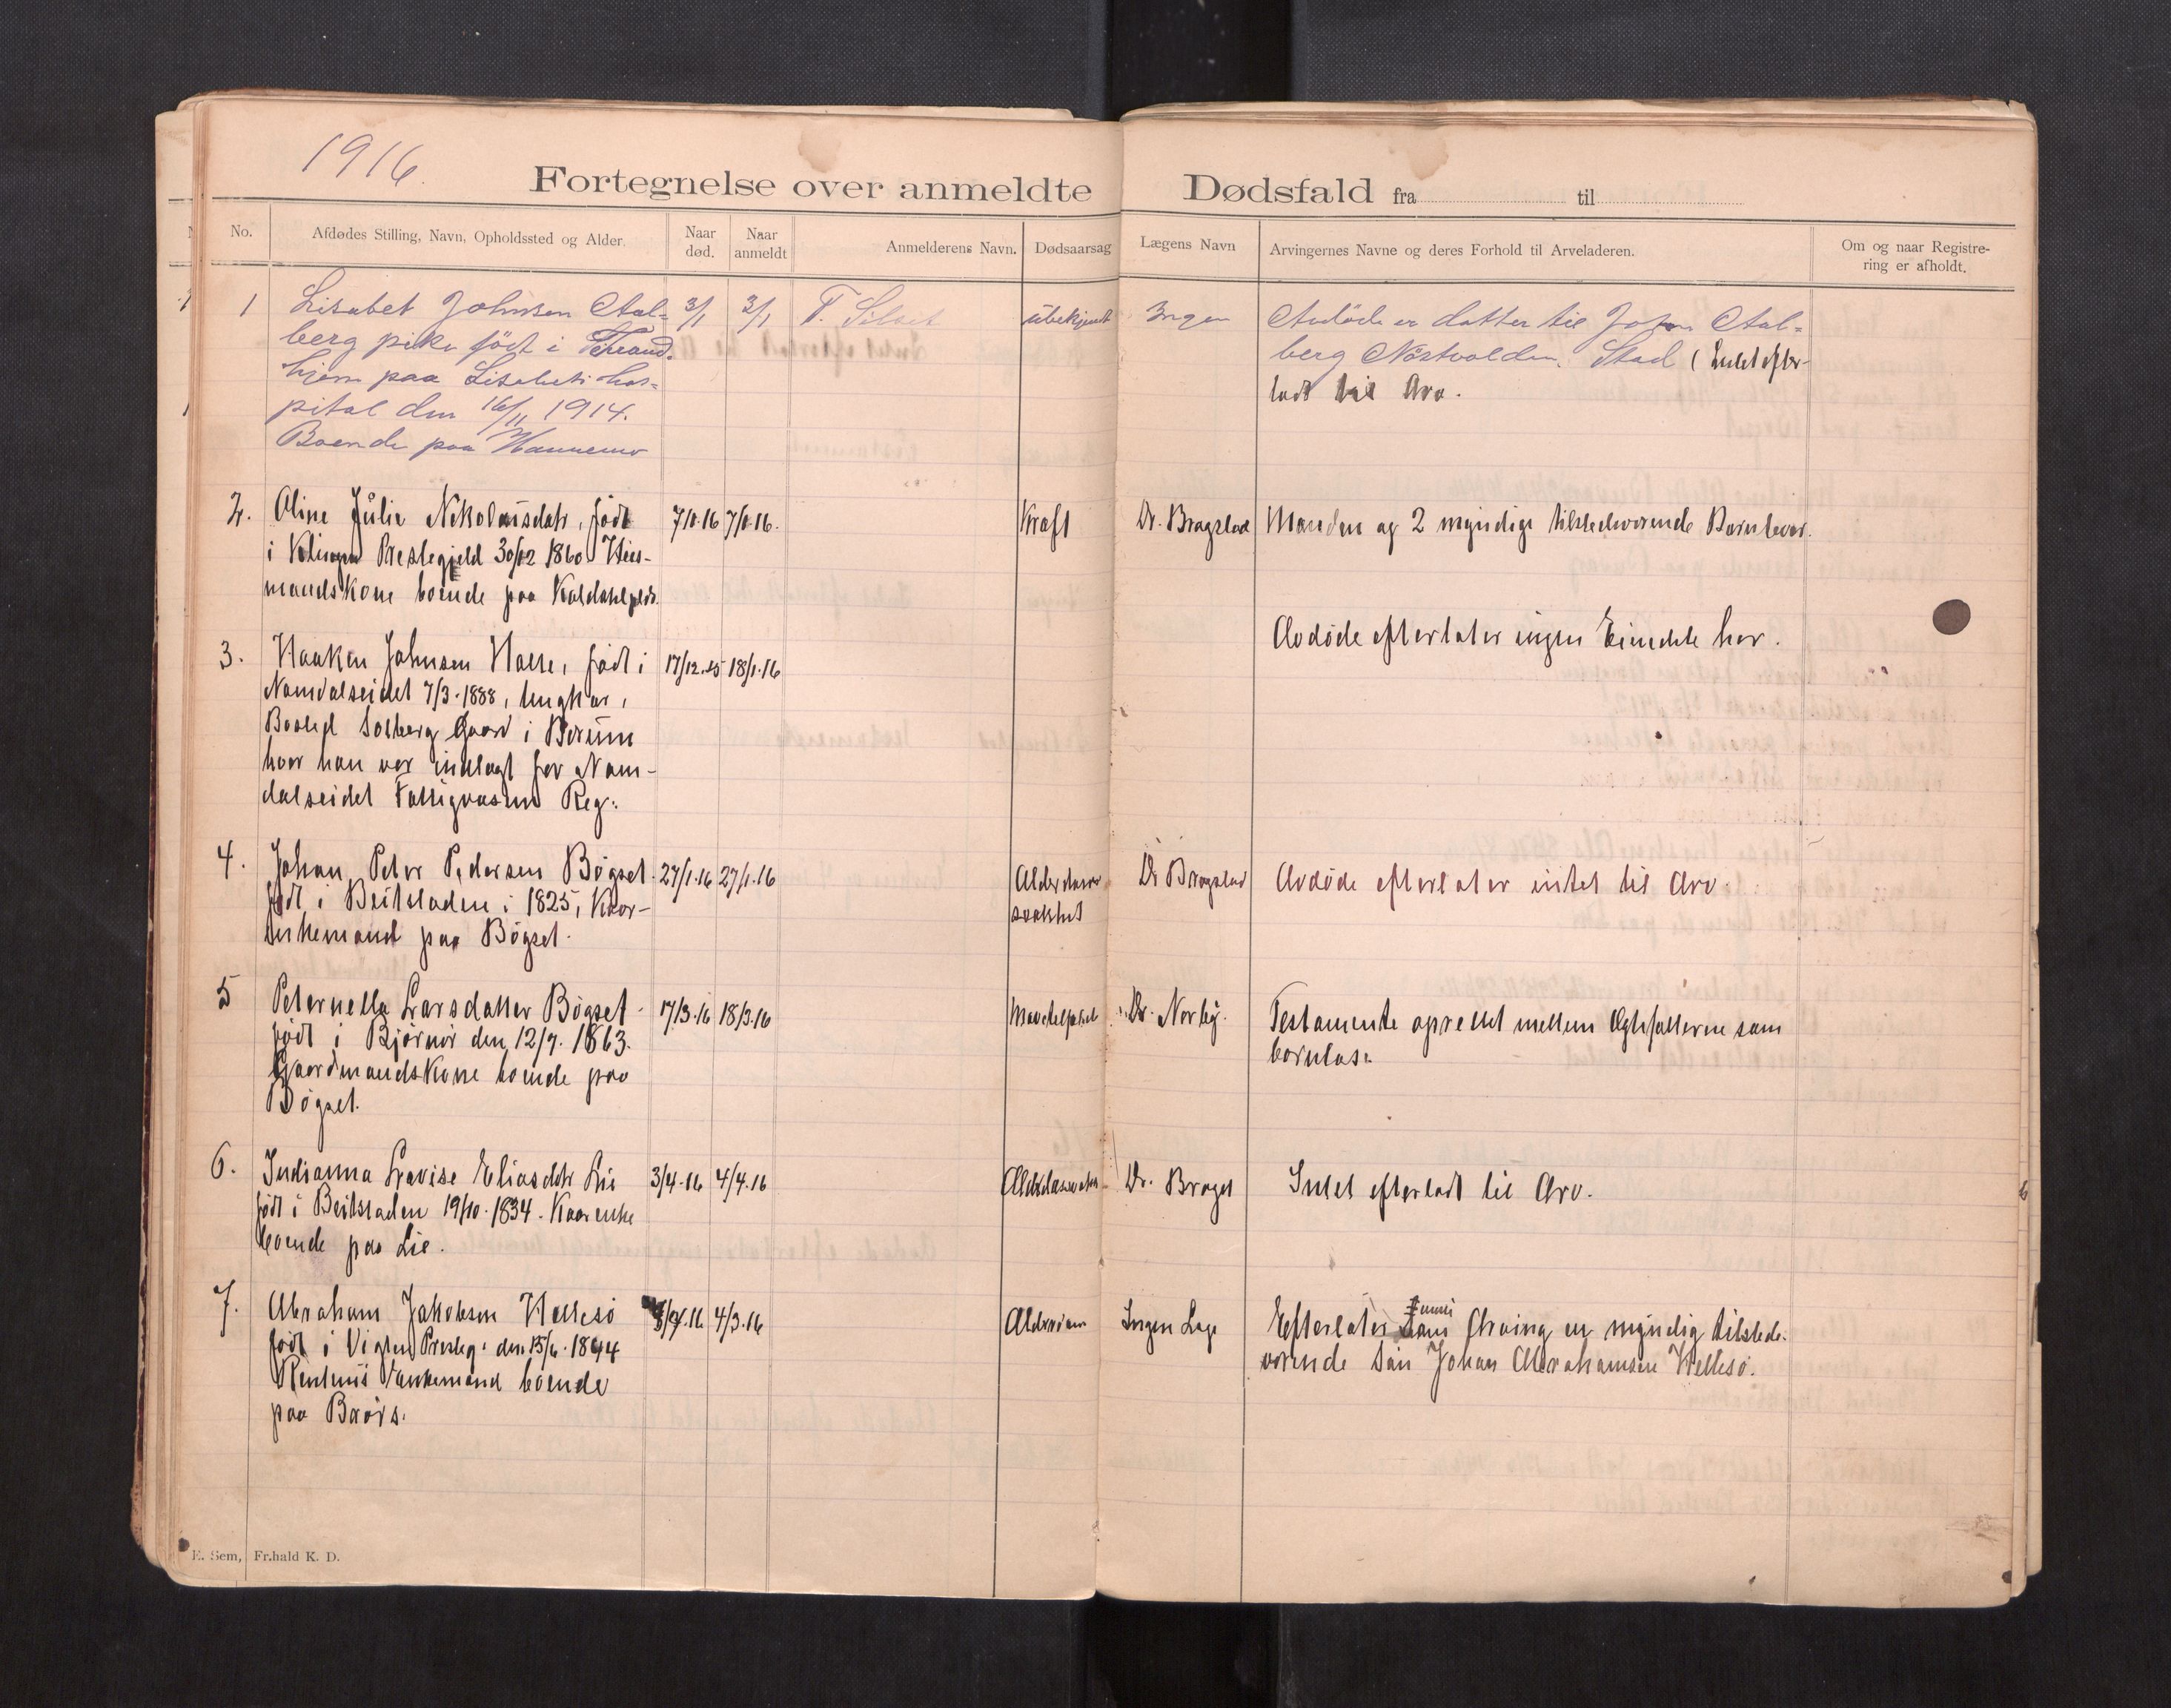 1916.
Fortegnelse over anmeldte Dødsfald fra til
No.
Afdødes Stilling, Navn, Opholdssted og Alder.
Naar død.
Naar anmeldt
Anmelderens Navn.
Dødsaarsag
Lægens Navn
Arvingernes Navne og deres Forhold til Arveladeren.
Om og naar Registrering er afholdt.
1 Lisabet Johnsen Aal= 3/1 3/1 T. Silset ubekjent Ingen Avdøde er datter til John Aal=
berg pike født i Trond berg Nöstvolden. Stad (Intet efter-
hjem paa Lisabets hos= ladt til Arv.
pital den 16/11 1914.
Boende paa
2. Oline Julie Nikolaisdatr, født 7/1.16 7/1.16. Kræft Dr. Bragstad Manden og 2 myndige tilstedeværende Børn lever.
i Prestegjeld 30/12 1860 Hus-
mandskone boende paa
3. Haakon Johnsen født i 17/12.15 18/1.16 Avdøde efterlater ingen Eiendele her.
Namdalseidet 7/3.1888, Ungkar,
Bosted Solberg Gaard i Bærum
hvor han var indlagt for Nam-
dalseidet Fattigvæsens Reg.
4. Johan Peter Pedersen Bøgset 27/1.16 27/1.16 Alderdoms Dr Bragstad Avdøde efterlater intet til Arv.
født i Beitstaden i 1825, Kaar- svakhet
enkemand paa Bøgset.
5 Peternella Larsdatter Bøgset 17/3.16 18/3.16 Dr. Norby. Testamente oprettet mellem Ægtefællerne som
født i Bjørnør den 12/7. 1863. barnløse.
Gaardmandskone boende paa
Bøgset.
6. Indianna Lovise Eliasdtr Lie 3/4.16 4/4.16 Dr. Intet efterladt til Arv.
født i Beitstaden 19/10.1834. Kaarenke
boende paa Lie.
7. Abraham Jakobsen Hellesø 4/3.16 Ingen Læge Efterlater som Arving en myndig tilstede-
født i Vigten Presteg. den 15/6. 1844 værende Søn Johan Abrahamsen Hellesø.
Enkemand boende
paa
E. Sem, Fr.hald K. D.